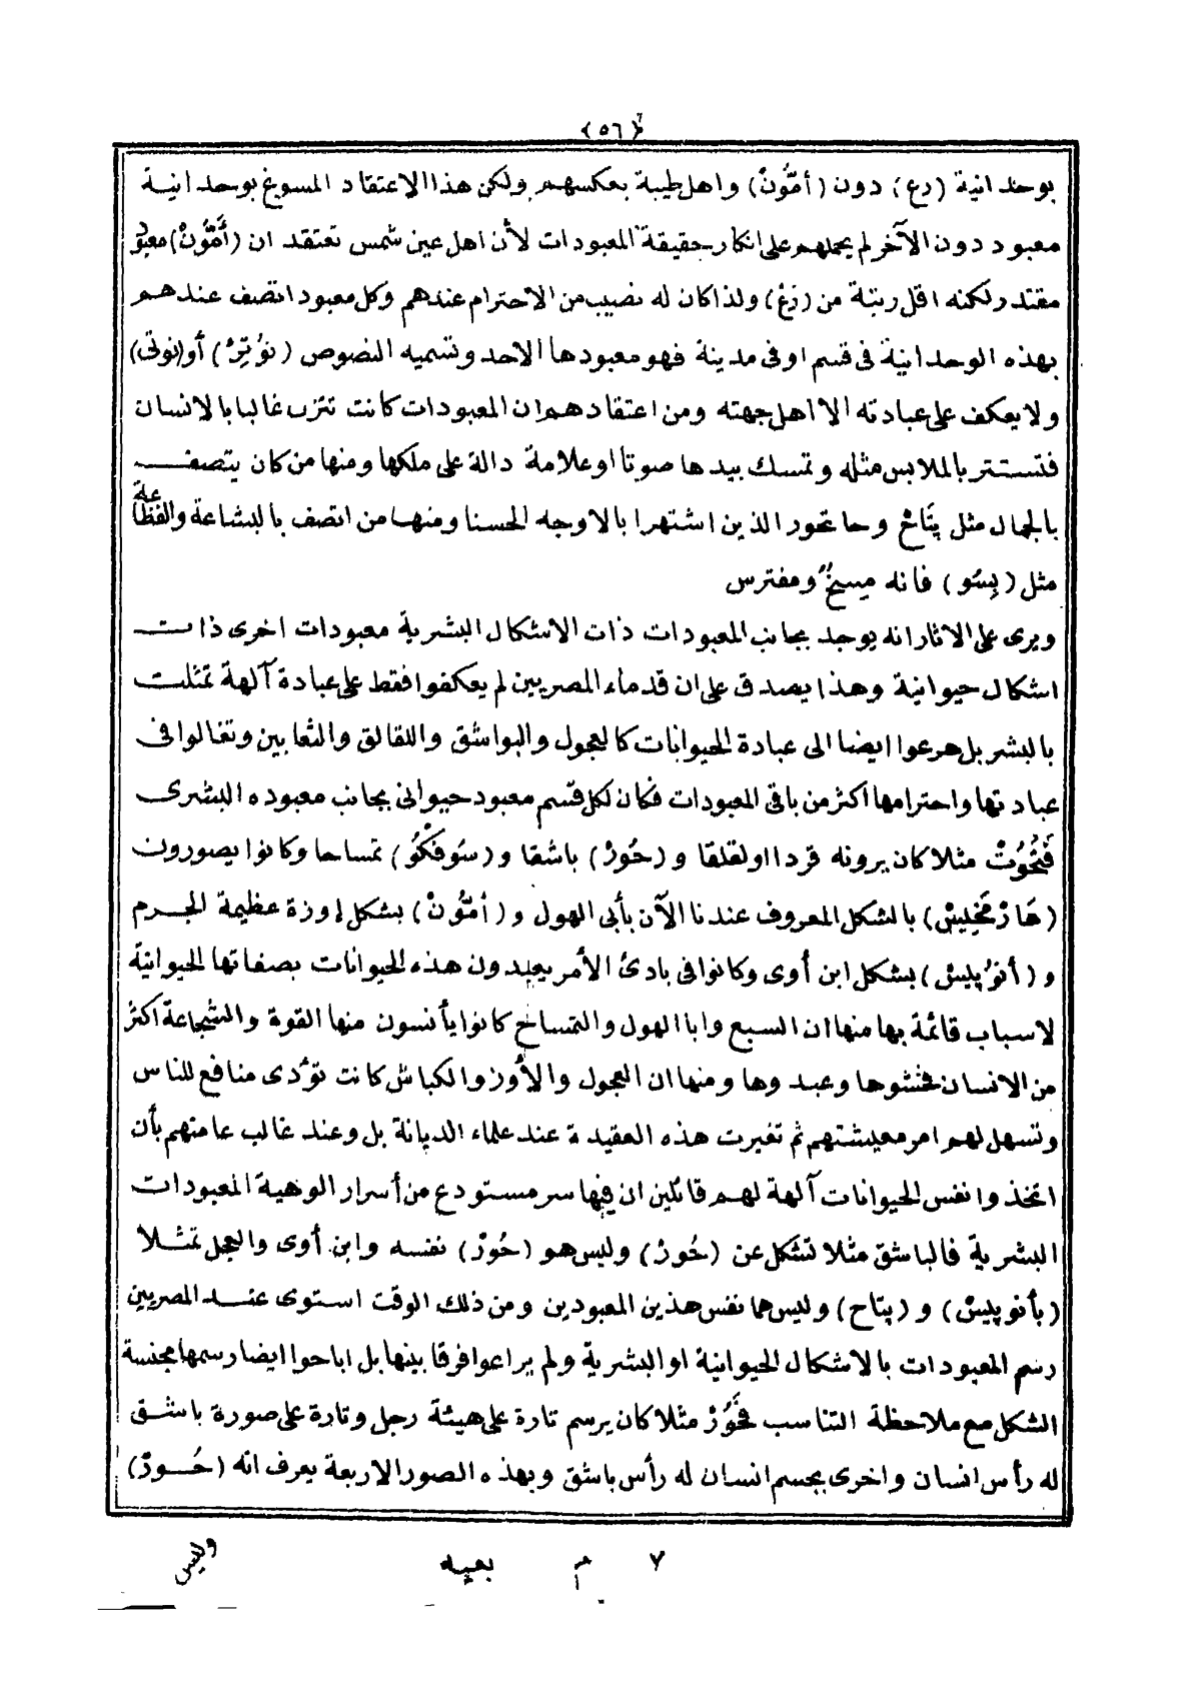 ﴿٥٦﴾
بوحدانية (رع) دون (أمّون) واهل طيبة بعكسهم ولكن هذا الاعتقاد المسوغ بوحدانية
معبود دون الآخر لم يحملهم على انكار حقيقة المعبودات لأن اهل عين شمس تعتقد ان (أمّون) معبود
مقتدر لكنه اقل رتبة من (رَعْ) ولذا كان له نصيب من الاحترام عندهم وكل معبود اتصف عندهم
بهذه الوحدانية فى قسم او فى مدينة فهو معبودها الاحد وتسميه النصوص (نوُتِرْ) أو (نوتى)
ولا يعكف على عبادته الا اهل جهته ومن اعتقادهم ان المعبودات كانت تتزب غالبا بالانسان
فتستتر بالملابس مثله وتمسك بيدها صوتا او علامة دالة على ملكها ومنها من كان يتصف
بالجمال مثل پتَاحْ وحاتحور الذين اشتهرا بالاوجه الحسنا ومنها من اتصف بالبشاعة والفظاعة
مثل (بِسُو) فانه مسيخٌ ومفترس
ويرى على الاثار انه يوجد بجانب المعبودات ذات الاشكال البشرية معبودات اخرى ذات
اشكال حيوانية وهذا يصدق على ان قدماء المصريين لم يعكفوا فقط على عبادة آلهة تمثلت
بالبشر بل هرعوا ايضا الى عبادة الحيوانات كالعجول والبواشق واللقالق والثعابين وتغالوا فى
عبادتها واحترامها اكثر من باقى المعبودات فكان لكل قسم معبود حيوانى بجانب معبوده البشرى
فَتُحُوُتْ مثلا كان يرونه قردا او لقلقا و (حُورْ) باشقا و (سُوفْكُو) تمساحا وكانوا يصورون
(هَارْمَخِليسْ) بالشكل المعروف عندنا الآن بأبى الهول و (أمّونْ) بشكل إوزة عظيمة الجرم
و (أنوُپيسْ) بشكل ابن أوى وكانوا فى بادئ الأمر يعبدون هذه الحيوانات بصفاتها الحيوانية
لاسباب قائمة بها منها ان السبع وابا الهول والتمساح كانوا يأنسون منها القوة والشجاعة اكثر
من الانسان فخشوها وعبدوها ومنها ان العجول والأوز والكباش كانت تؤدى منافع للناس
وتسهل لهم امر معيشتهم ثم تغيرت هذه العقيدة عند علماء الديانة بل وعند غالب عامتهم بأن
اتخذوا نفس الحيوانات آلهة لهم قائلين ان فيها سر مستودع من أسرار الوهية المعبودات
البشرية فالباشق مثلا تشكل عن (حُورْ) وليس هو (حُورْ) نفسه وابن أوى والعجل تمثلا
(بأنوپيسْ) و (پتاح) وليس هما نفس هذين المعبودين ومن ذلك الوقت استوى عند المصريين
رسم المعبودات بالاشكال الحيوانية او البشرية ولم يراعوا فرقا بينها بل اباحوا ايضا رسمها مجنسة
الشكل مع ملاحظة التناسب فحُورْ مثلا كان يرسم تارة على هيئة رجل وتارة على صورة باشق
له رأس انسان واخرى بجسم انسان له رأس باشق وبهذه الصور الاربعة يعرف انه (حُورْ)
وليس
٧ م بعيه